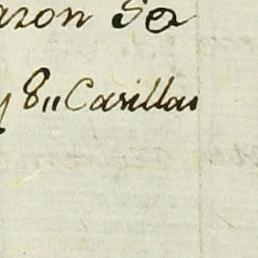 azon So
y 8,, Casillas